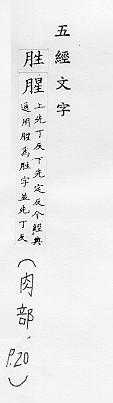 五經文字
胜腥
上先丁反下先定反今經典
通用腥爲胜字並先丁反
(肉部.
P.20)